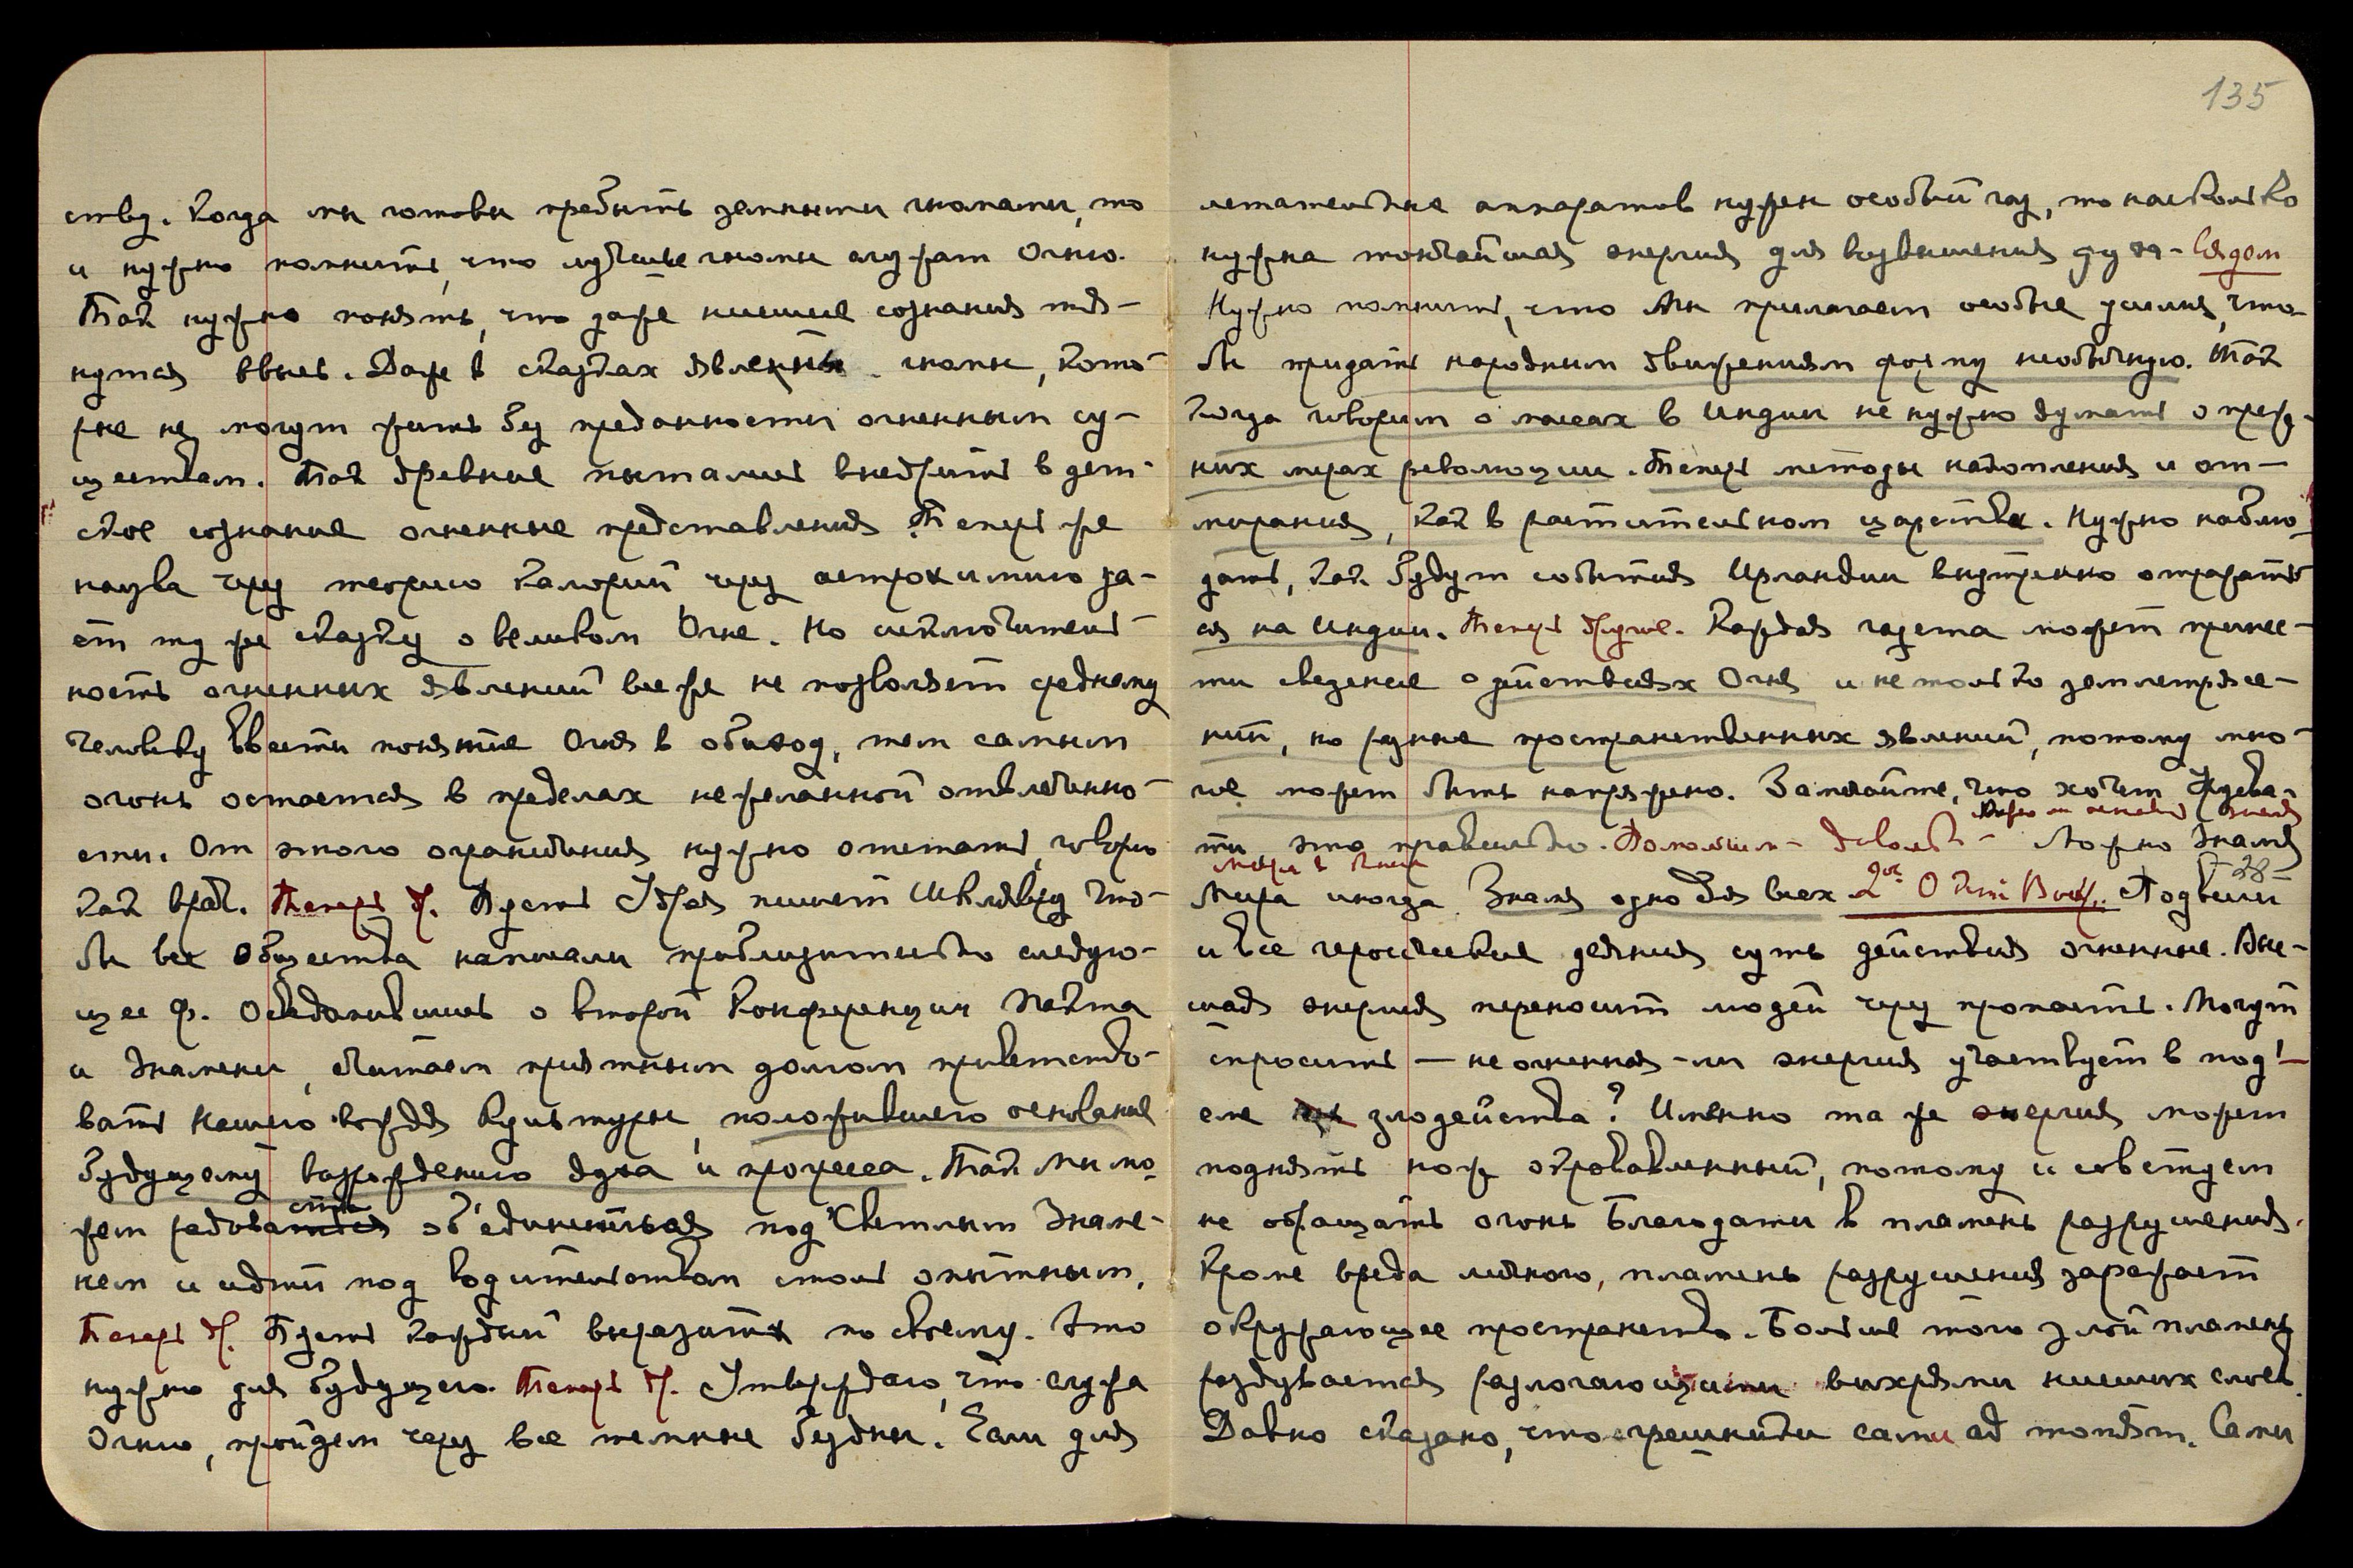 135
ству. Когда мы готовы пребыть земными гномами, то
и нужно помнить, что лучшие гномы служат Огню.
Так нужно понять, что даже низшие сознания тя-
нутся ввысь. Даже в сказках явлены гномы, кото-
рые не могут жить без преданности огненным су-
ществам. Так древние пытались внедрить в дет-
ское сознание огненные представления. Теперь же
наука через теорию калорий через астрохимию да-
ет ту же сказку о великом Огне. Но исключитель-
ность огненных явлений все же не позволяет среднему
человеку ввести понятие Огня в обиход, тем самым
огонь остается в пределах нежеланной отвлеченно-
сти. От этого ограничения нужно отстать, говорю
как врач. Теперь др. Пусть пишет Шклявер что-
бы все Общества написали приблизительно следую-
щее ф. Осведомившись о второй Конференции Пакта
и Знамени, считаем приятным долгом приветство-
вать нашего вождя Культуры, положившего основание
будущему возрождению духа и прогресса. Так мы мо-
жем радоваться объединиться под Светлым Знаме-
нем и идти под водительством столь опытным.
Теперь др. Пусть каждый выразит по своему. Это
нужно для будущего. Теперь др. Утверждаю, что служа
Огню, пройдем через все темные бездны. Если для
летательных аппаратов нужен особый газ, то насколько
нужна тончайшая энергия для возвышения духа - Сядем
Нужно помнить, что Мы прилагаем особые усилия, что-
бы придать народным движениям форму необычную. Так
когда говорим о массах в Индии не нужно думать о преж-
них мерах революции. Теперь методы накопления и от-
мирания, как в растительном царстве. Нужно наблю-
дать, как будут события Ирландии внутренно отражать-
ся на Индии. Теперь другое. Каждая газета может принес-
ти сведение о действиях Огня и не только землетрясе-
ний, но разных пространственных явлений, потому мно-
гое может быть напряжено. Замечайте, что хочет
ти это правильно. Помолчим - Довольно - Можно Знамя
Мира иногда. Знамя одно для всех 2ое О Подвиги
и все героические деяния суть действия огненные. Выс-
шая энергия переносит людей через пропасть. Могут
спросить — не огненная-ли энергия участвует в подъ-
еме злодейства? Именно та же энергия может
поднять нож окровавленный, потому и советуем
не обращать огонь Благодати в пламень разрушения.
Кроме вреда личного, пламень разрушения заражает
окружающее пространство. Больше того злой пламень
раздувается разлагающими вихрями низших слоев.
Давно сказано, что грешники сами ад топят. Сами